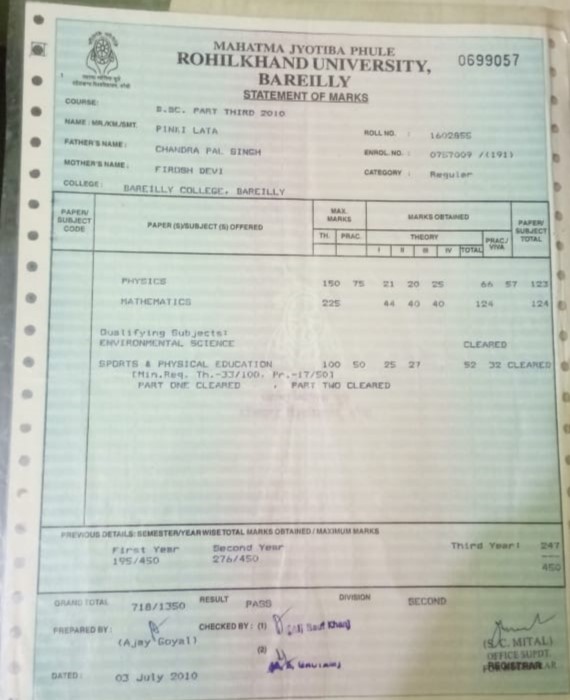 MAHATMA JYOTIBA PHULE
ROHILKHAND UNIVERSITY,
BAREILLY
0699057
STATEMENT OF MARKS
COURSE: B.SC. PART THIRD 2010
NAME : MR./KM./SMT. PINKI LATA
ROLL NO. : 1602855
FATHER'S NAME : CHANDRA PAL SINGH
ENROL. NO. : 0757009 /(191)
MOTHER'S NAME : FIRDISH DEVI
CATEGORY : Regular
COLLEGE : BAREILLY COLLEGE, BAREILLY
PAPER/ SUBJECT CODE PAPER (S)/SUBJECT (S) OFFERED MAX. MARKS MARKS OBTAINED PAPER/ SUBJECT TOTAL
TH. PRAC. THEORY PRAC./ VIVA
I II III IV TOTAL
PHYSICS 150 75 21 20 25 66 57 123
MATHEMATICS 225 44 40 40 124 124
Qualifying Subjects:
ENVIRONMENTAL SCIENCE CLEARED
SPORTS & PHYSICAL EDUCATION 100 50 25 27 52 32 CLEARED
(Min.Req. Th.-33/100, Pr.-17/50)
PART ONE CLEARED , PART TWO CLEARED
PREVIOUS DETAILS: SEMESTER/YEARWISE TOTAL MARKS OBTAINED / MAXIMUM MARKS
First Year Second Year Third Year: 247
195/450 276/450 450
GRAND TOTAL 718/1350 RESULT PASS DIVISION SECOND
PREPARED BY : CHECKED BY : (1)
(Ajay Goyal)
(2)
(S.C. MITAL)
OFFICE SUPDT.
REGISTRAR
DATED: 03 July 2010